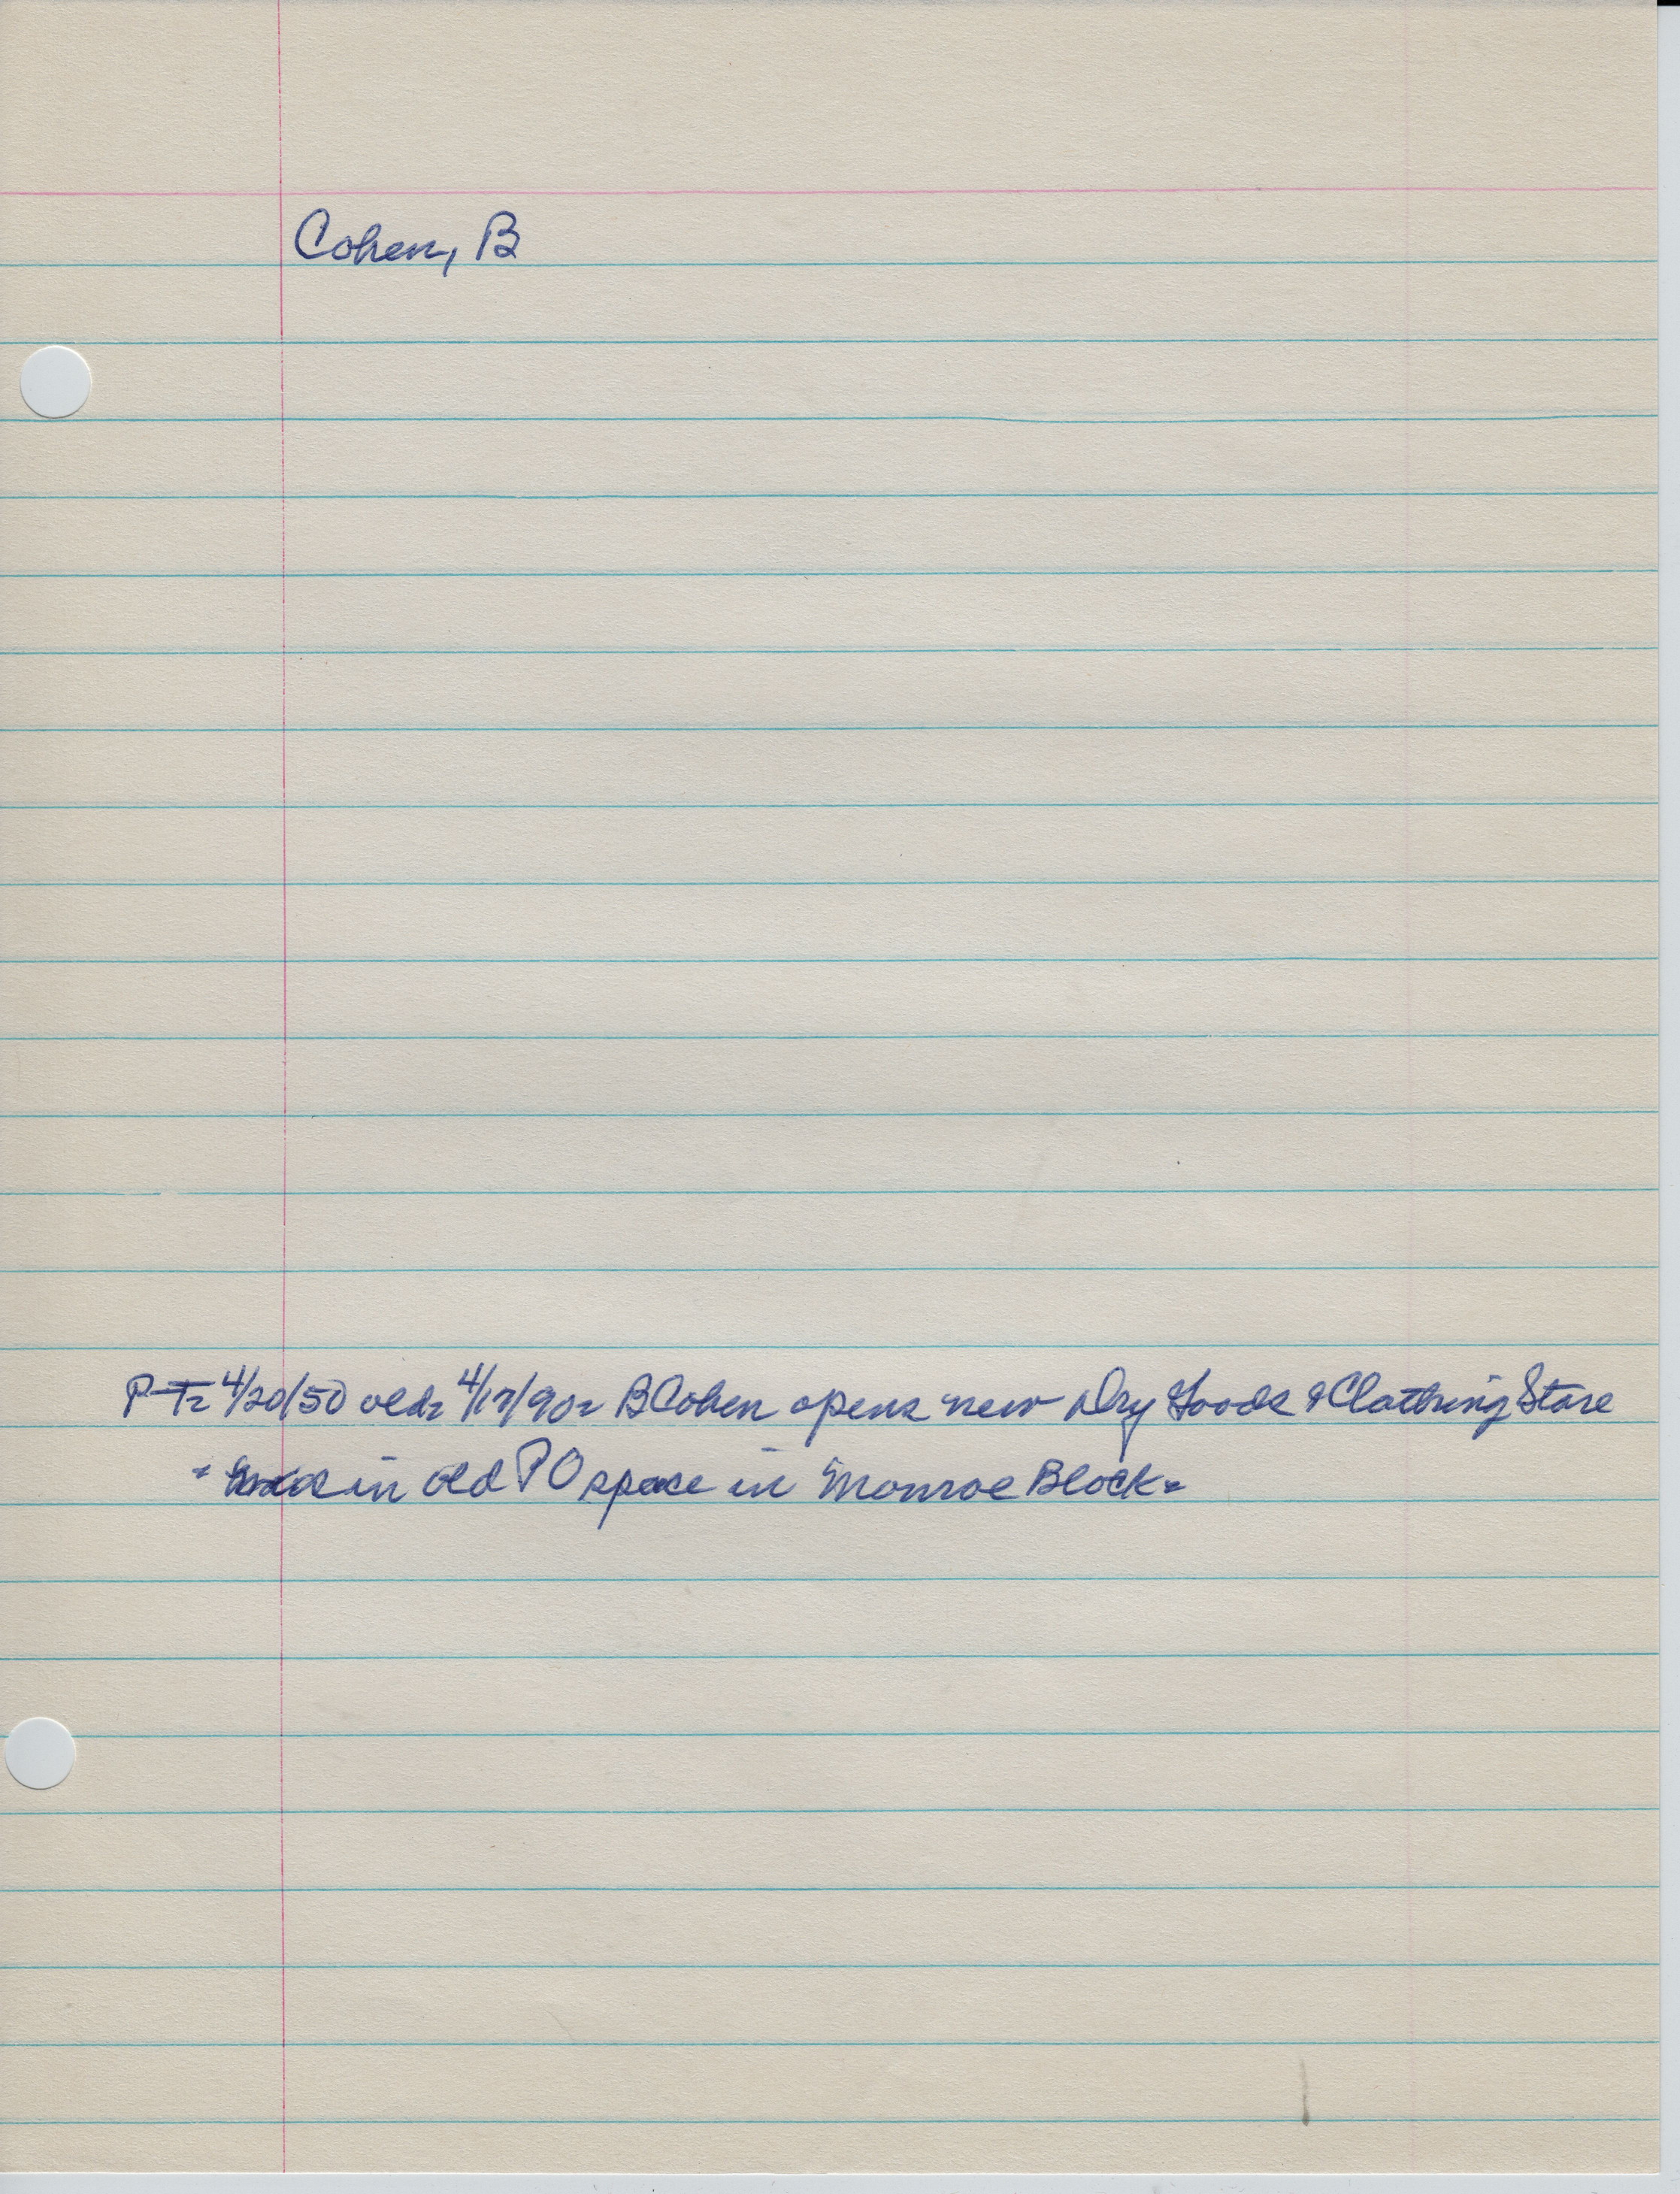 Cohen, B
P-T= 4/20/50 old= 4/17/90= B Cohen opens new Dry Goods & Clothing Store
= in old PO space in Monroe Block=